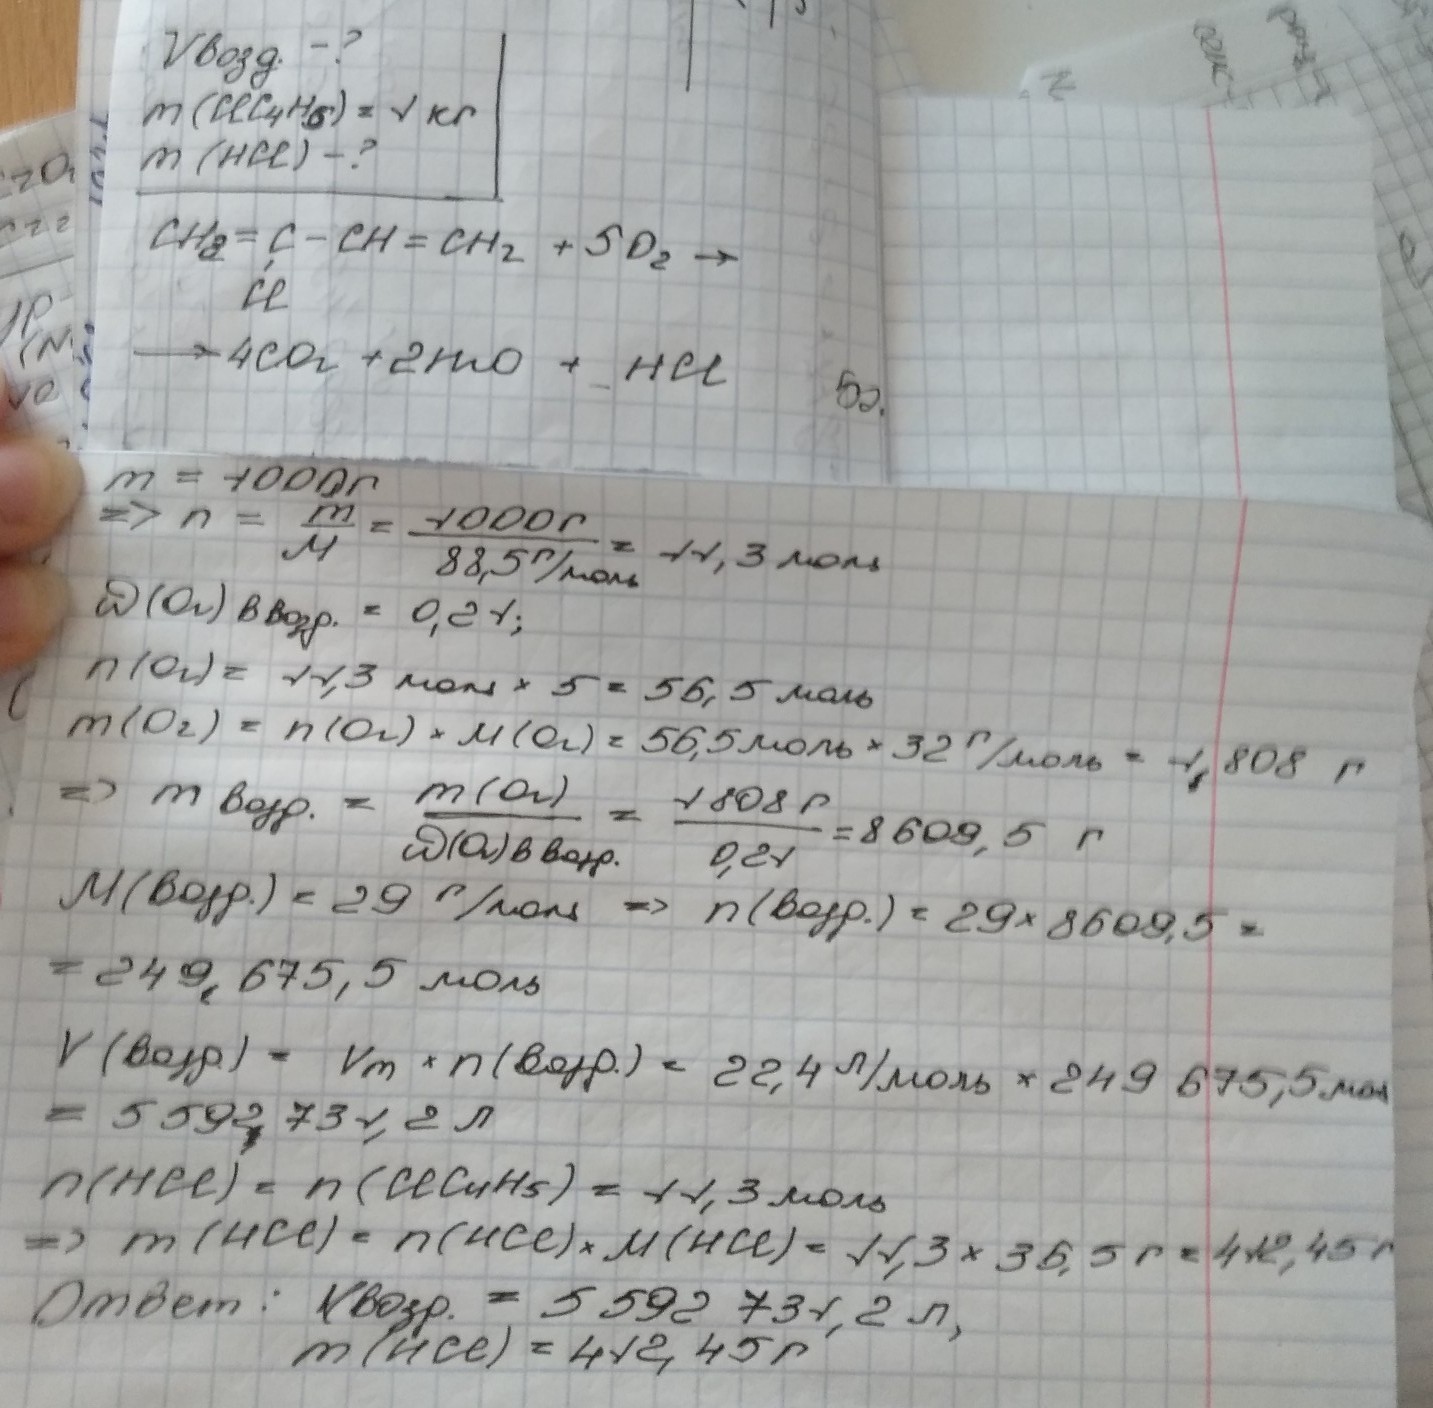 Vвозд. - ?
m (ClC4H5) = 1 кг
m (HCl) - ?
CH2 = C - CH = CH2 + 5O2 →
Cl
→ 4CO2 + 2H2O + HCl
52.
m = 1000г
=> n = m/M = 1000г/88,5 г/моль = 11,3 моль
ω(O2) в возр. = 0,21;
n(O2) = 11,3 моль × 5 = 56,5 моль
m(O2) = n(O2) × M(O2) = 56,5 моль × 32 г/моль = 1,808 г
=> m возр. = m(O2)/ω(O2) в возр. = 1808 г/0,21 = 8609,5 г
M(возр.) = 29 г/моль => n(возр.) = 29 × 8609,5 =
= 249,675,5 моль
V(возр.) = Vm × n(возр.) = 22,4 л/моль × 249 675,5 мол
= 5 592,731,2 л
n(HCl) = n(ClC4H5) = 11,3 моль
=> m(HCl) = n(HCl) × M(HCl) = 11,3 × 36,5 г = 412,45 г
Ответ: Vвозр. = 5 592 731,2 л,
m(HCl) = 412,45 г